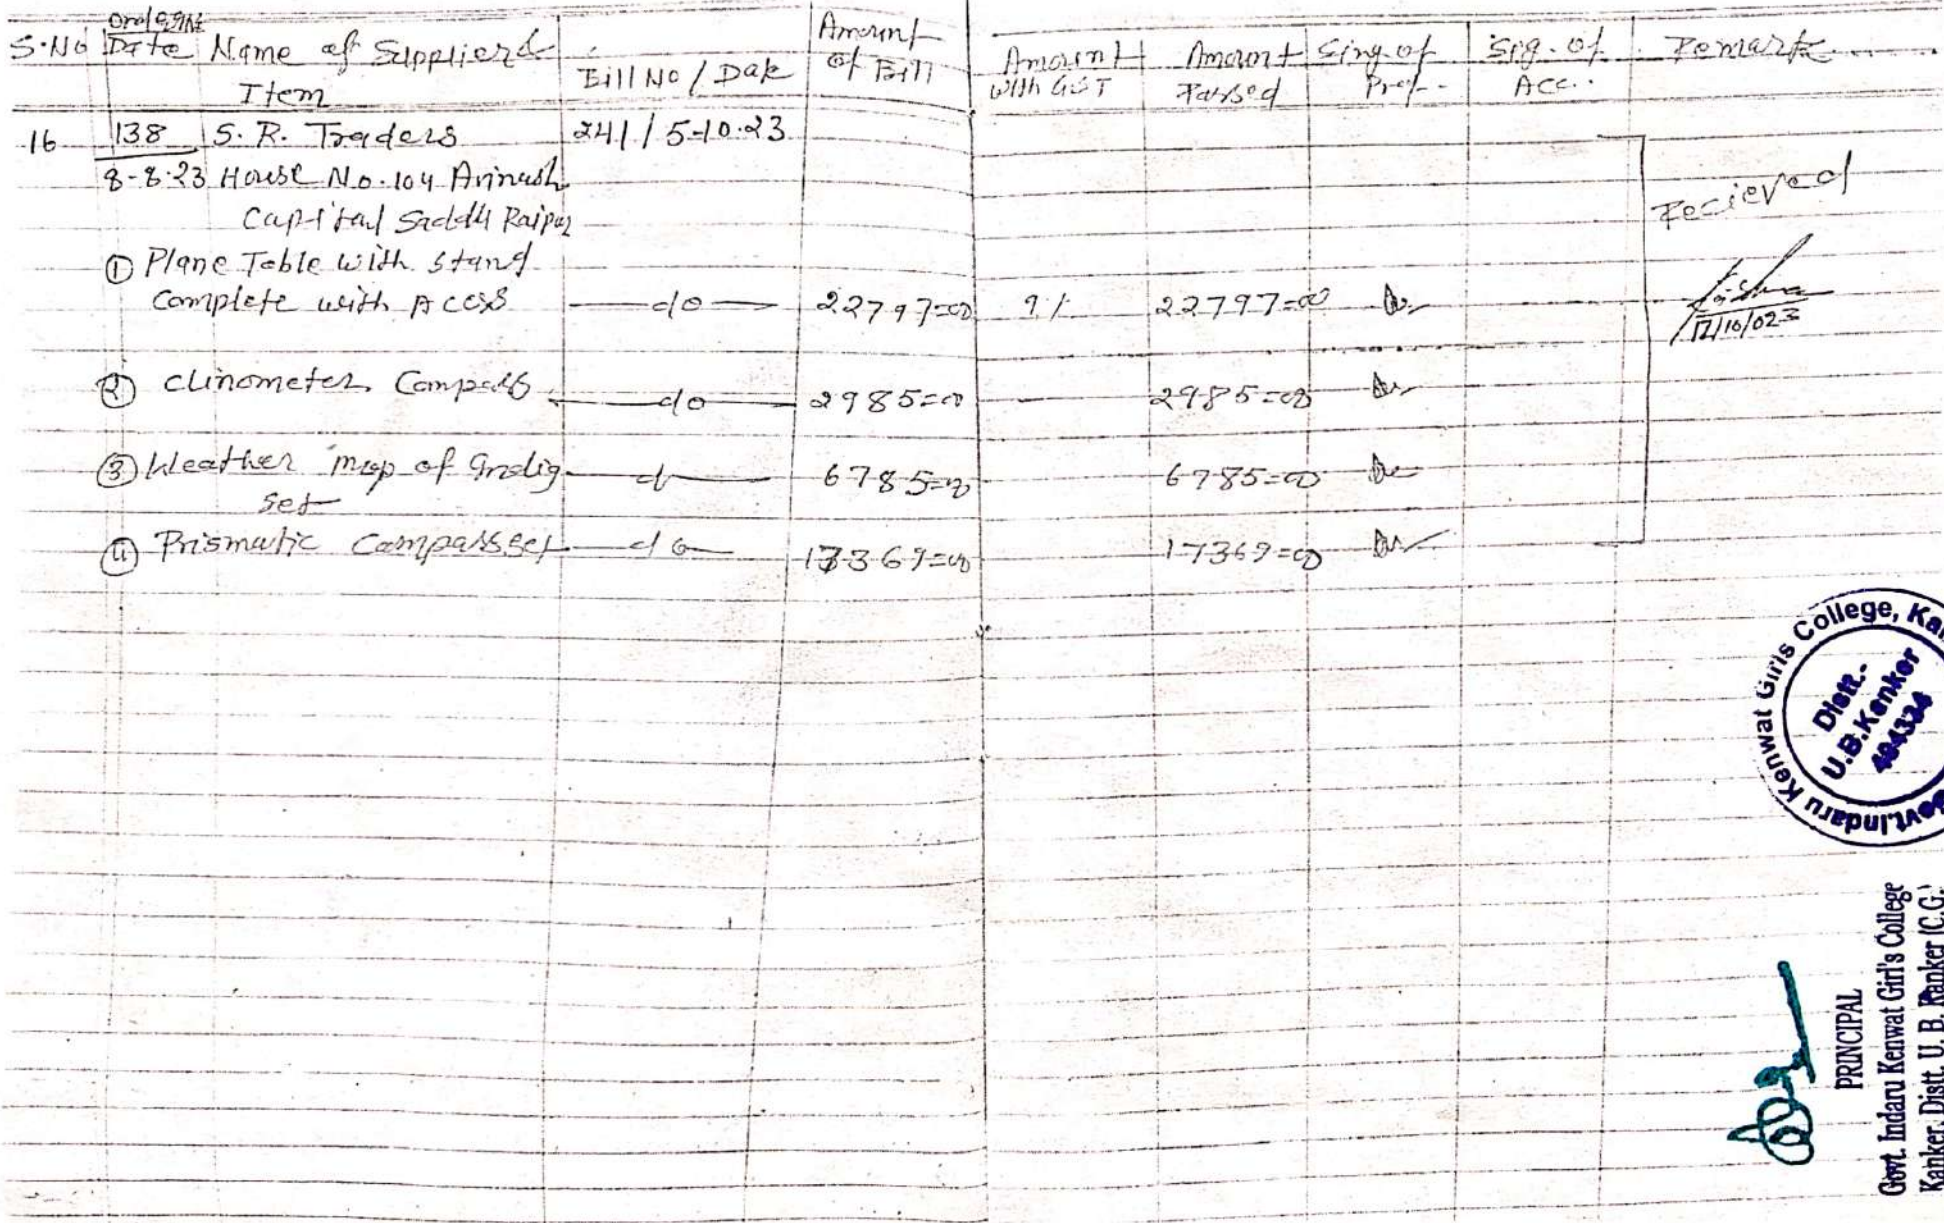 S.No Date Name of Supplier & Item Bill No / Date Amount of Bill Amount With GST Amount Passed Sing. of Prof. Sig. of Acc. Remark
16 138 S. R. Traders 241 / 5-10.23
8-8-23 House No. 104 Avinash
Capital Saddu Raipur
Recieved
① Plane Table with stand
Complete with Access do 22797=00 9% 22797=00
17/10/023
② Clinometer Compass do 2985=00 2985=00
③ Weather map of India do 6785=00 6785=00
set
④ Prismatic Compass set do 17369=00 17369=00
Govt. Indaru Kenwat Girls College, Kan
Distt.-
U.B.Kanker
494334
PRINCIPAL
Govt. Indaru Kenwat Girl's College
Kanker, Distt. U. B. Kanker (C.G.)